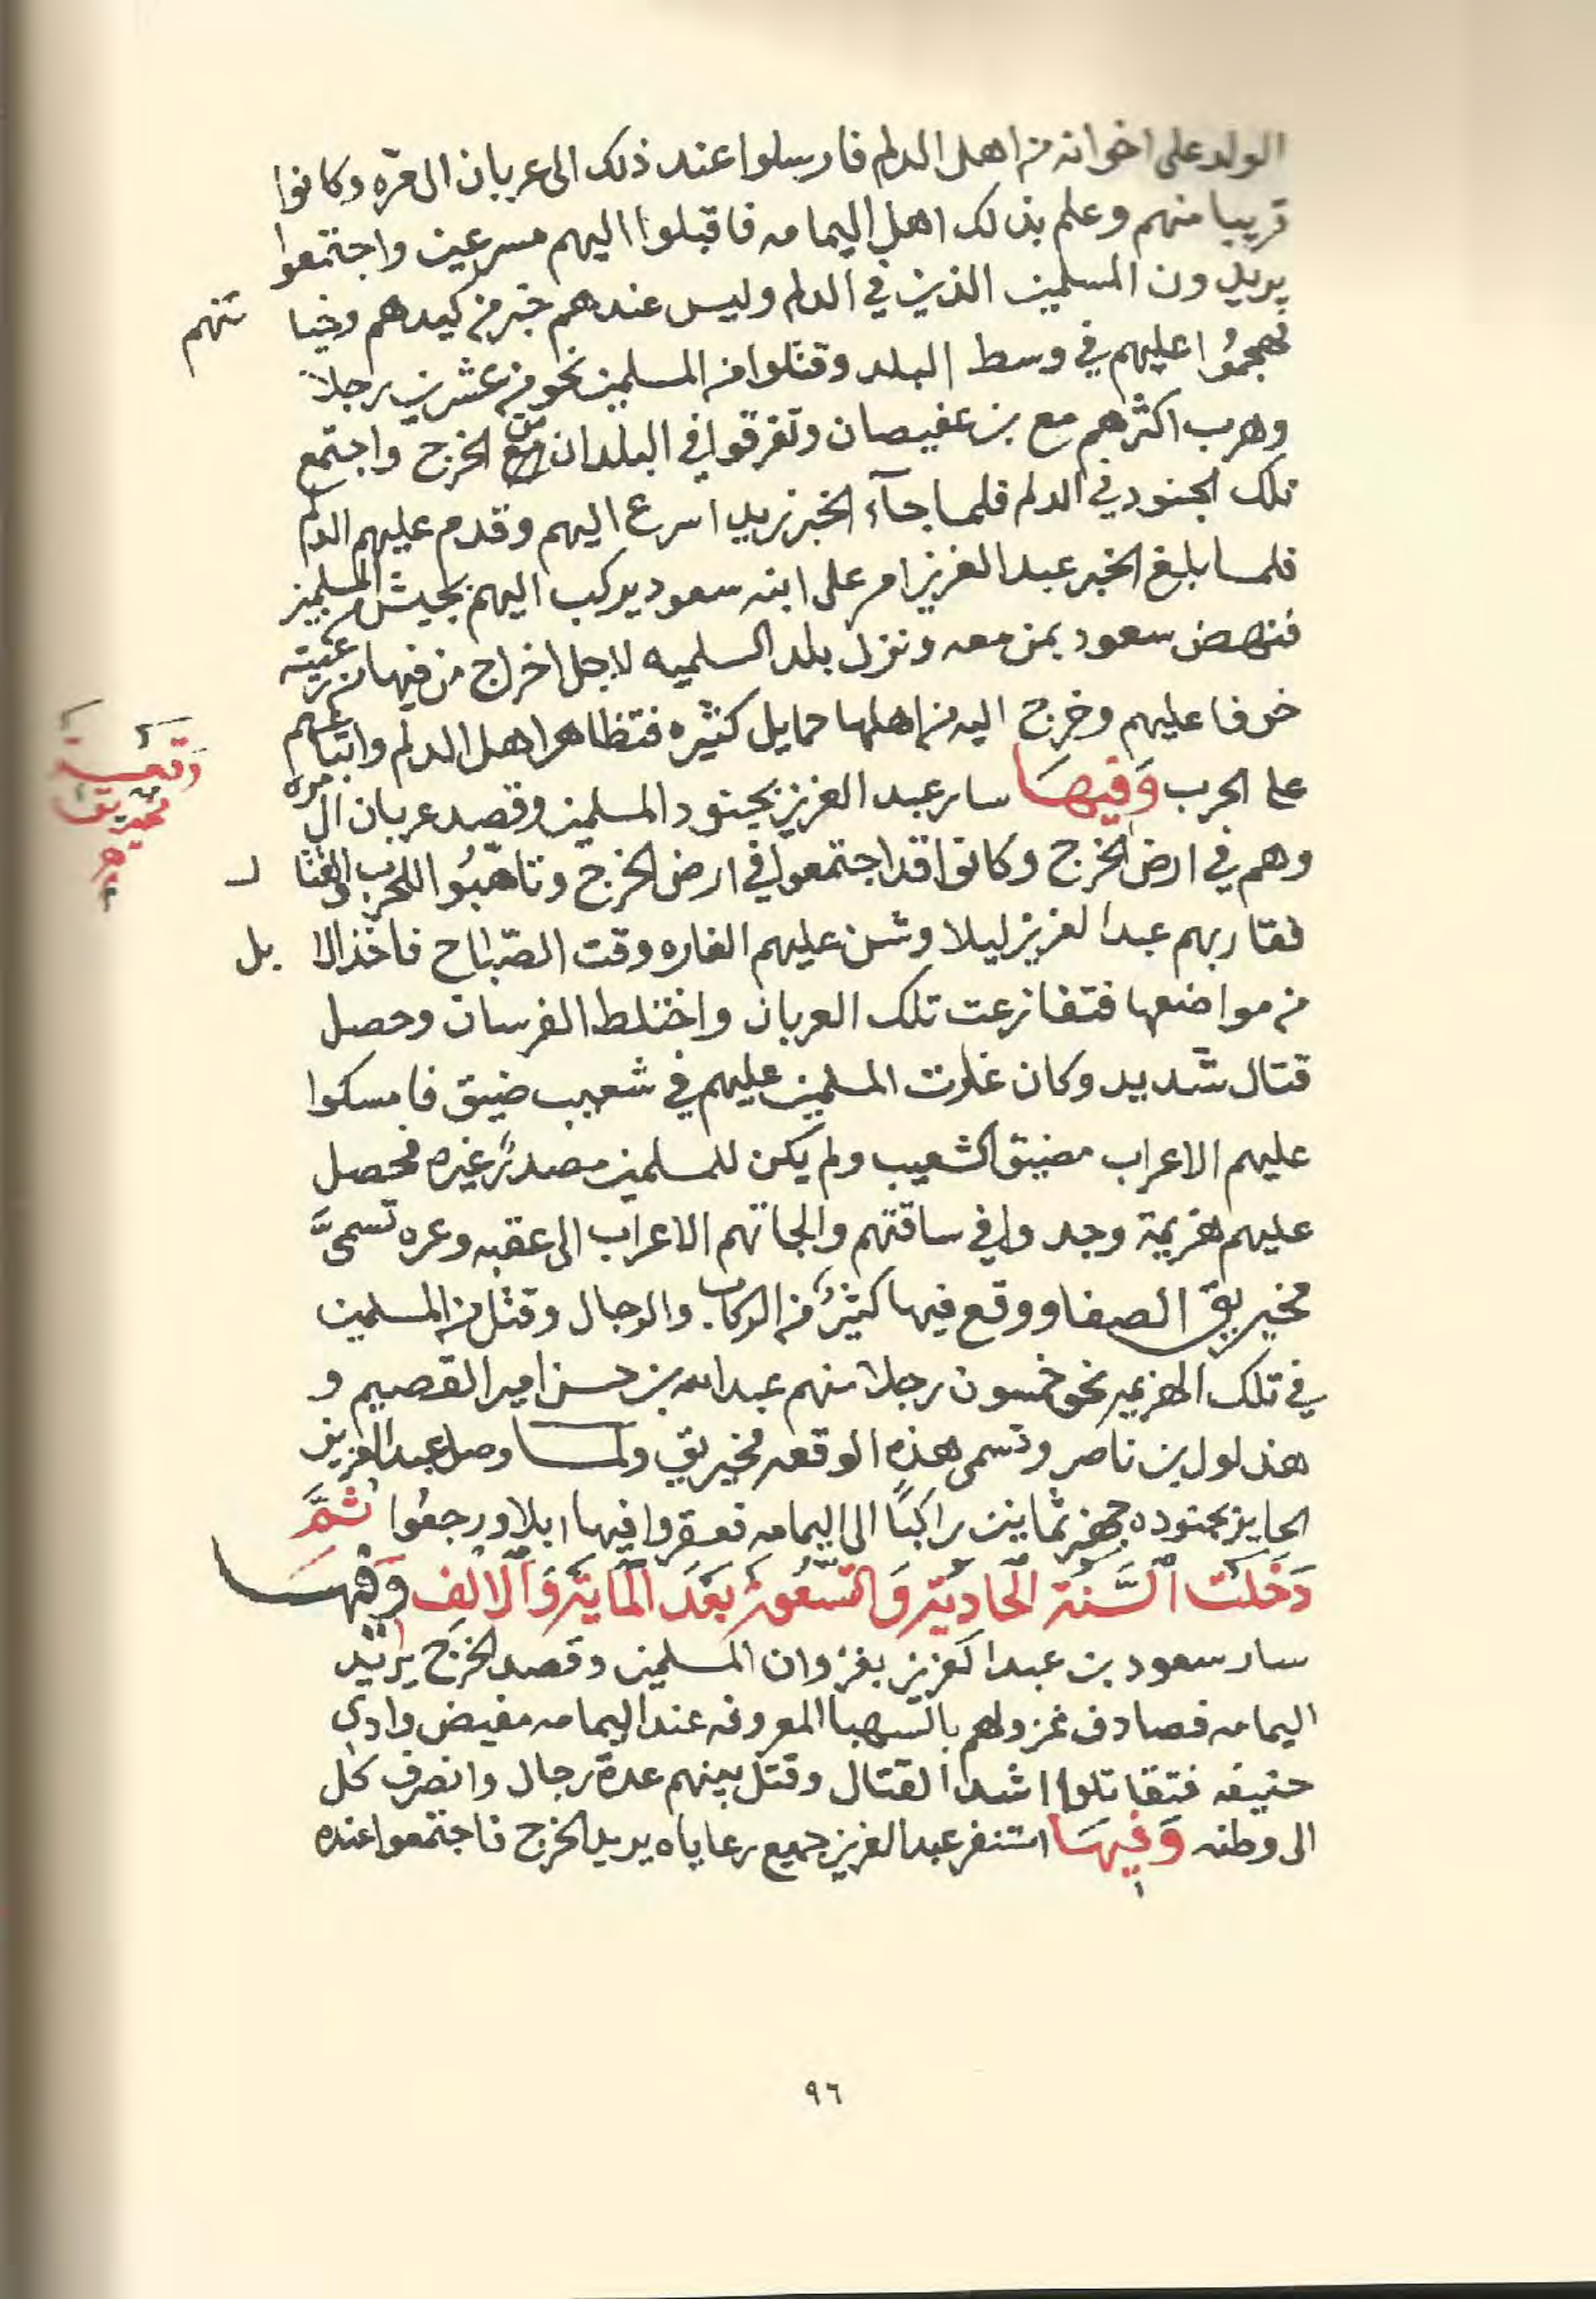 الولد على اخوانه من اهل الدلم فارسلوا عند ذلك الى عربان ال مره وكانوا
قريبا منهم وعلم بذلك اهل اليمامه فاقبلوا اليهم مسرعين واجتمعوا
يريدون المسلمين الذين في الدلم وليس عندهم خبر من كيدهم وخيا نتهم
فهجموا عليهم في وسط البلد وقتلوا من المسلمين نحو من عشرين رجلاً
وهرب اكثرهم مع بن عفيصان وتفرقوا في البلدان من الخرج واجتمع
تلك الجنود في الدلم فلما جآء الخبر زيد اسرع اليهم وقدم عليهم الدلم
فلما بلغ الخبر عبد العزيز امر على ابنه سعود يركب اليهم بجيش المسلمين
فنهض سعود بمن معه ونزل بلد السلميه لاجل اخراج من فيها من رعيته
خوفا عليهم وخرج اليه من اهلها حمايل كثيره فتظاهر اهل الدلم واتباعهم
على الحرب وَفيهَا سار عبد العزيز بجنود المسلمين وقصد عربان ال مره
وهم في ارض الخرج وكانوا قد اجتمعوا في ارض الخرج وتاهبُوا للحرب والقتا ل
فقاربهم عبد العزيز ليلا وشن عليهم الغاره وقت الصّباح فاخذ الا بل
من مواضعها فتفازعت تلك العربان واختلط الفرسان وحصل
قتال شديد وكان غارت المسلمين عليهم في شعيب ضيق فامسكوا
عليهم الاعراب مضيق الشعيب ولم يكن للمسلمين مصدرً غيره فحصل
عليهم هزيمة وجدوا في ساقتهم والجاتهم الاعراب الى عقبه وعره تسمىَّ
مخيريق الصفا ووقع فيها كثيرٌ من الركاب والرجال وقتل من المسلمين
في تلك الهزيمه نحو خمسون رجلا منهم عبد الله بن حسن امير القصيم و
هذلول بن ناصر وتسمى هذه الوقعه مخيريق ولما وصل عبد العزيز
الحاير بجنوده جهز ثمانين راكبًا الى اليمامه فعقروا فيها ابلا ورجعوا ثُمَّ
دَخَلَت السَّنَة الحَاديَة وَالتسْعُون بَعْدَ المايَة وَالالف وَفيهَا
سار سعود بن عبد العزيز بغزوان المسلمين وقصد الخرج يريد
اليمامه فصادف غزو لهم بالسهبا المعروفه عند اليمامه مفيض وادي
حنيفه فتقاتلوا اشد القتال وقتل بينهم عدة رجال وانصرف كل
الى وطنه وَفيهَا استنفر عبد العزيز جميع رعاياه يريد الخرج فاجتمعوا عنده
وقعة
مخيريق
٩٦